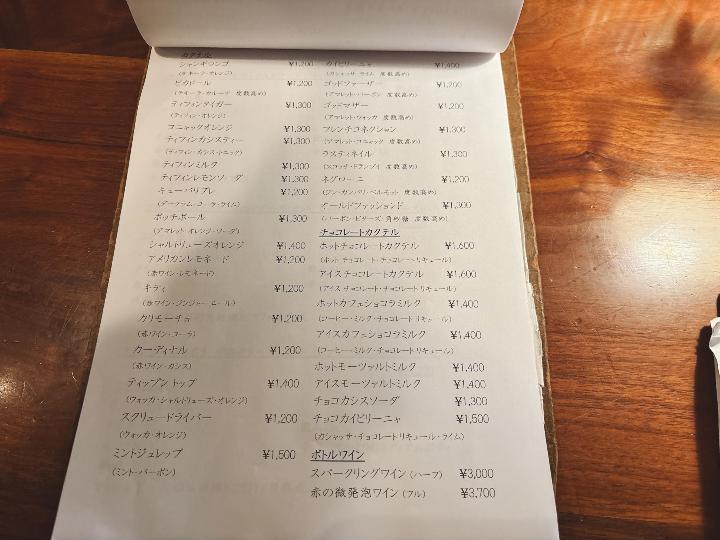 カクテル
シャンギロンゴ ¥1,200
(テキーラ・オレンジ)
ピカドール ¥1,200
(テキーラ・カルーア 度数高め)
ティフィンタイガー ¥1,300
(ティフィン・オレンジ)
コニャックオレンジ ¥1,300
ティフィンカシスティー ¥1,300
(ティフィン・カシス・トニック)
ティフィンミルク ¥1,300
ティフィンレモンソーダ ¥1,300
キューバリブレ ¥1,200
(ダークラム・コーラ・ライム)
ボッチボール ¥1,300
(アマレット・オレンジ・ソーダ)
シャルトリューズオレンジ ¥1,400
アメリカンレモネード ¥1,200
(赤ワイン・レモネード)
キティ ¥1,200
(赤ワイン・ジンジャーエール)
カリモーチョ ¥1,200
(赤ワイン・コーラ)
カーディナル ¥1,200
(赤ワイン・カシス)
ティップントップ ¥1,400
(ウォッカ・シャルトリューズ・オレンジ)
スクリュードライバー ¥1,200
(ウォッカ・オレンジ)
ミントジュレップ ¥1,500
(ミント・バーボン)
カイピリーニャ ¥1,400
(カシャッサ・ライム 度数高め)
ゴッドファーザー ¥1,200
(アマレット・バーボン 度数高め)
ゴッドマザー ¥1,200
(アマレット・ウォッカ 度数高め)
フレンチコネクション ¥1,300
(アマレット・コニャック 度数高め)
ラスティネイル ¥1,300
(スコッチ・ドランブイ 度数高め)
ネグローニ ¥1,200
(ジン・カンパリ・ベルモット 度数高め)
オールドファッションド ¥1,300
(バーボン・ビターズ・角砂糖 度数高め)
チョコレートカクテル
ホットチョコレートカクテル ¥1,600
(ホットチョコレート・チョコレートリキュール)
アイスチョコレートカクテル ¥1,600
(アイスチョコレート・チョコレートリキュール)
ホットカフェショコラミルク ¥1,400
(コーヒー・ミルク・チョコレートリキュール)
アイスカフェショコラミルク ¥1,400
(コーヒー・ミルク・チョコレートリキュール)
ホットモーツァルトミルク ¥1,400
アイスモーツァルトミルク ¥1,400
チョコカシスソーダ ¥1,300
チョコカイピリーニャ ¥1,500
(カシャッサ・チョコレートリキュール・ライム)
ボトルワイン
スパークリングワイン (ハーフ) ¥3,000
赤の微発泡ワイン (フル) ¥3,700